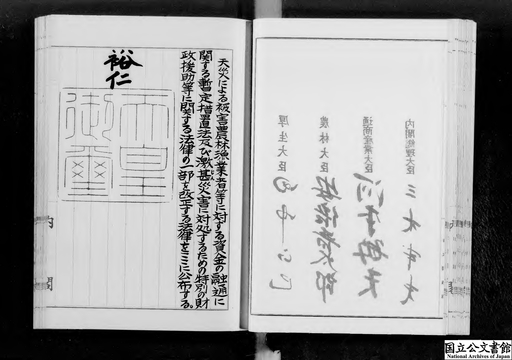 天災による被害農林漁業者等に対する資金の融通に
関する暫定措置法及び激甚災害に対処するための特別の財
政援助等に関する法律の一部を改正する法律をここに公布する。
裕仁
天皇
御璽
内閣総理大臣
三木武夫
通商産業大臣
農林大臣
厚生大臣
内
閣
国立公文書館
National Archives of Japan